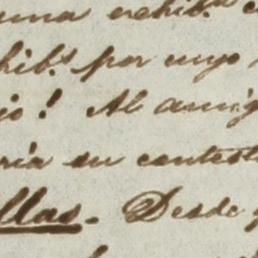 una exhib.n
hib.s por cuyo
jo! Al amig
ría su contest
llas. Desde